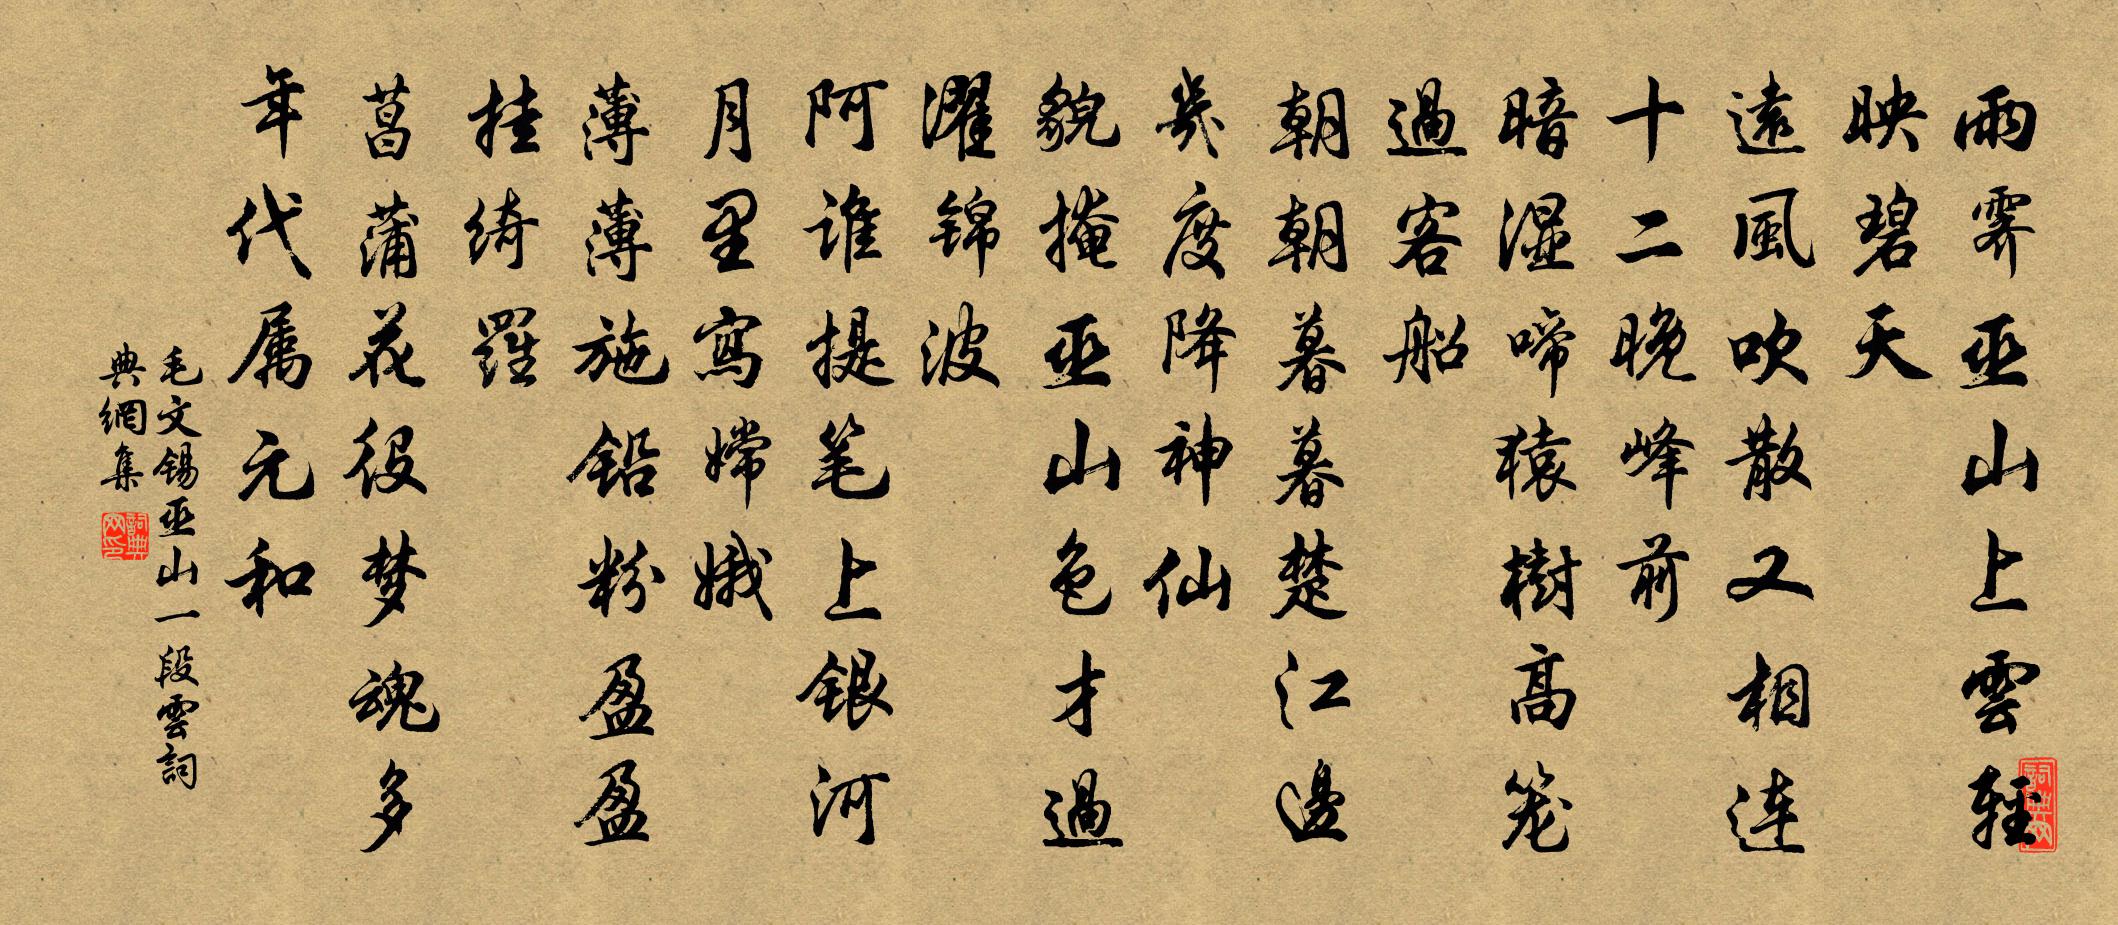 雨霁巫山上雲輕
映碧天
遠風吹散又相連
十二晚峰前
暗湿啼猿樹高笼
過客船
朝朝暮暮楚江邊
几度降神仙
貌掩巫山色才過
濯锦波
阿谁提笔上银河
月里寫嫦娥
薄薄施铅粉盈盈
挂绮羅
菖蒲花役梦魂多
年代属元和
毛文锡巫山一段雲詞
典網集
詞典网印
詞典网